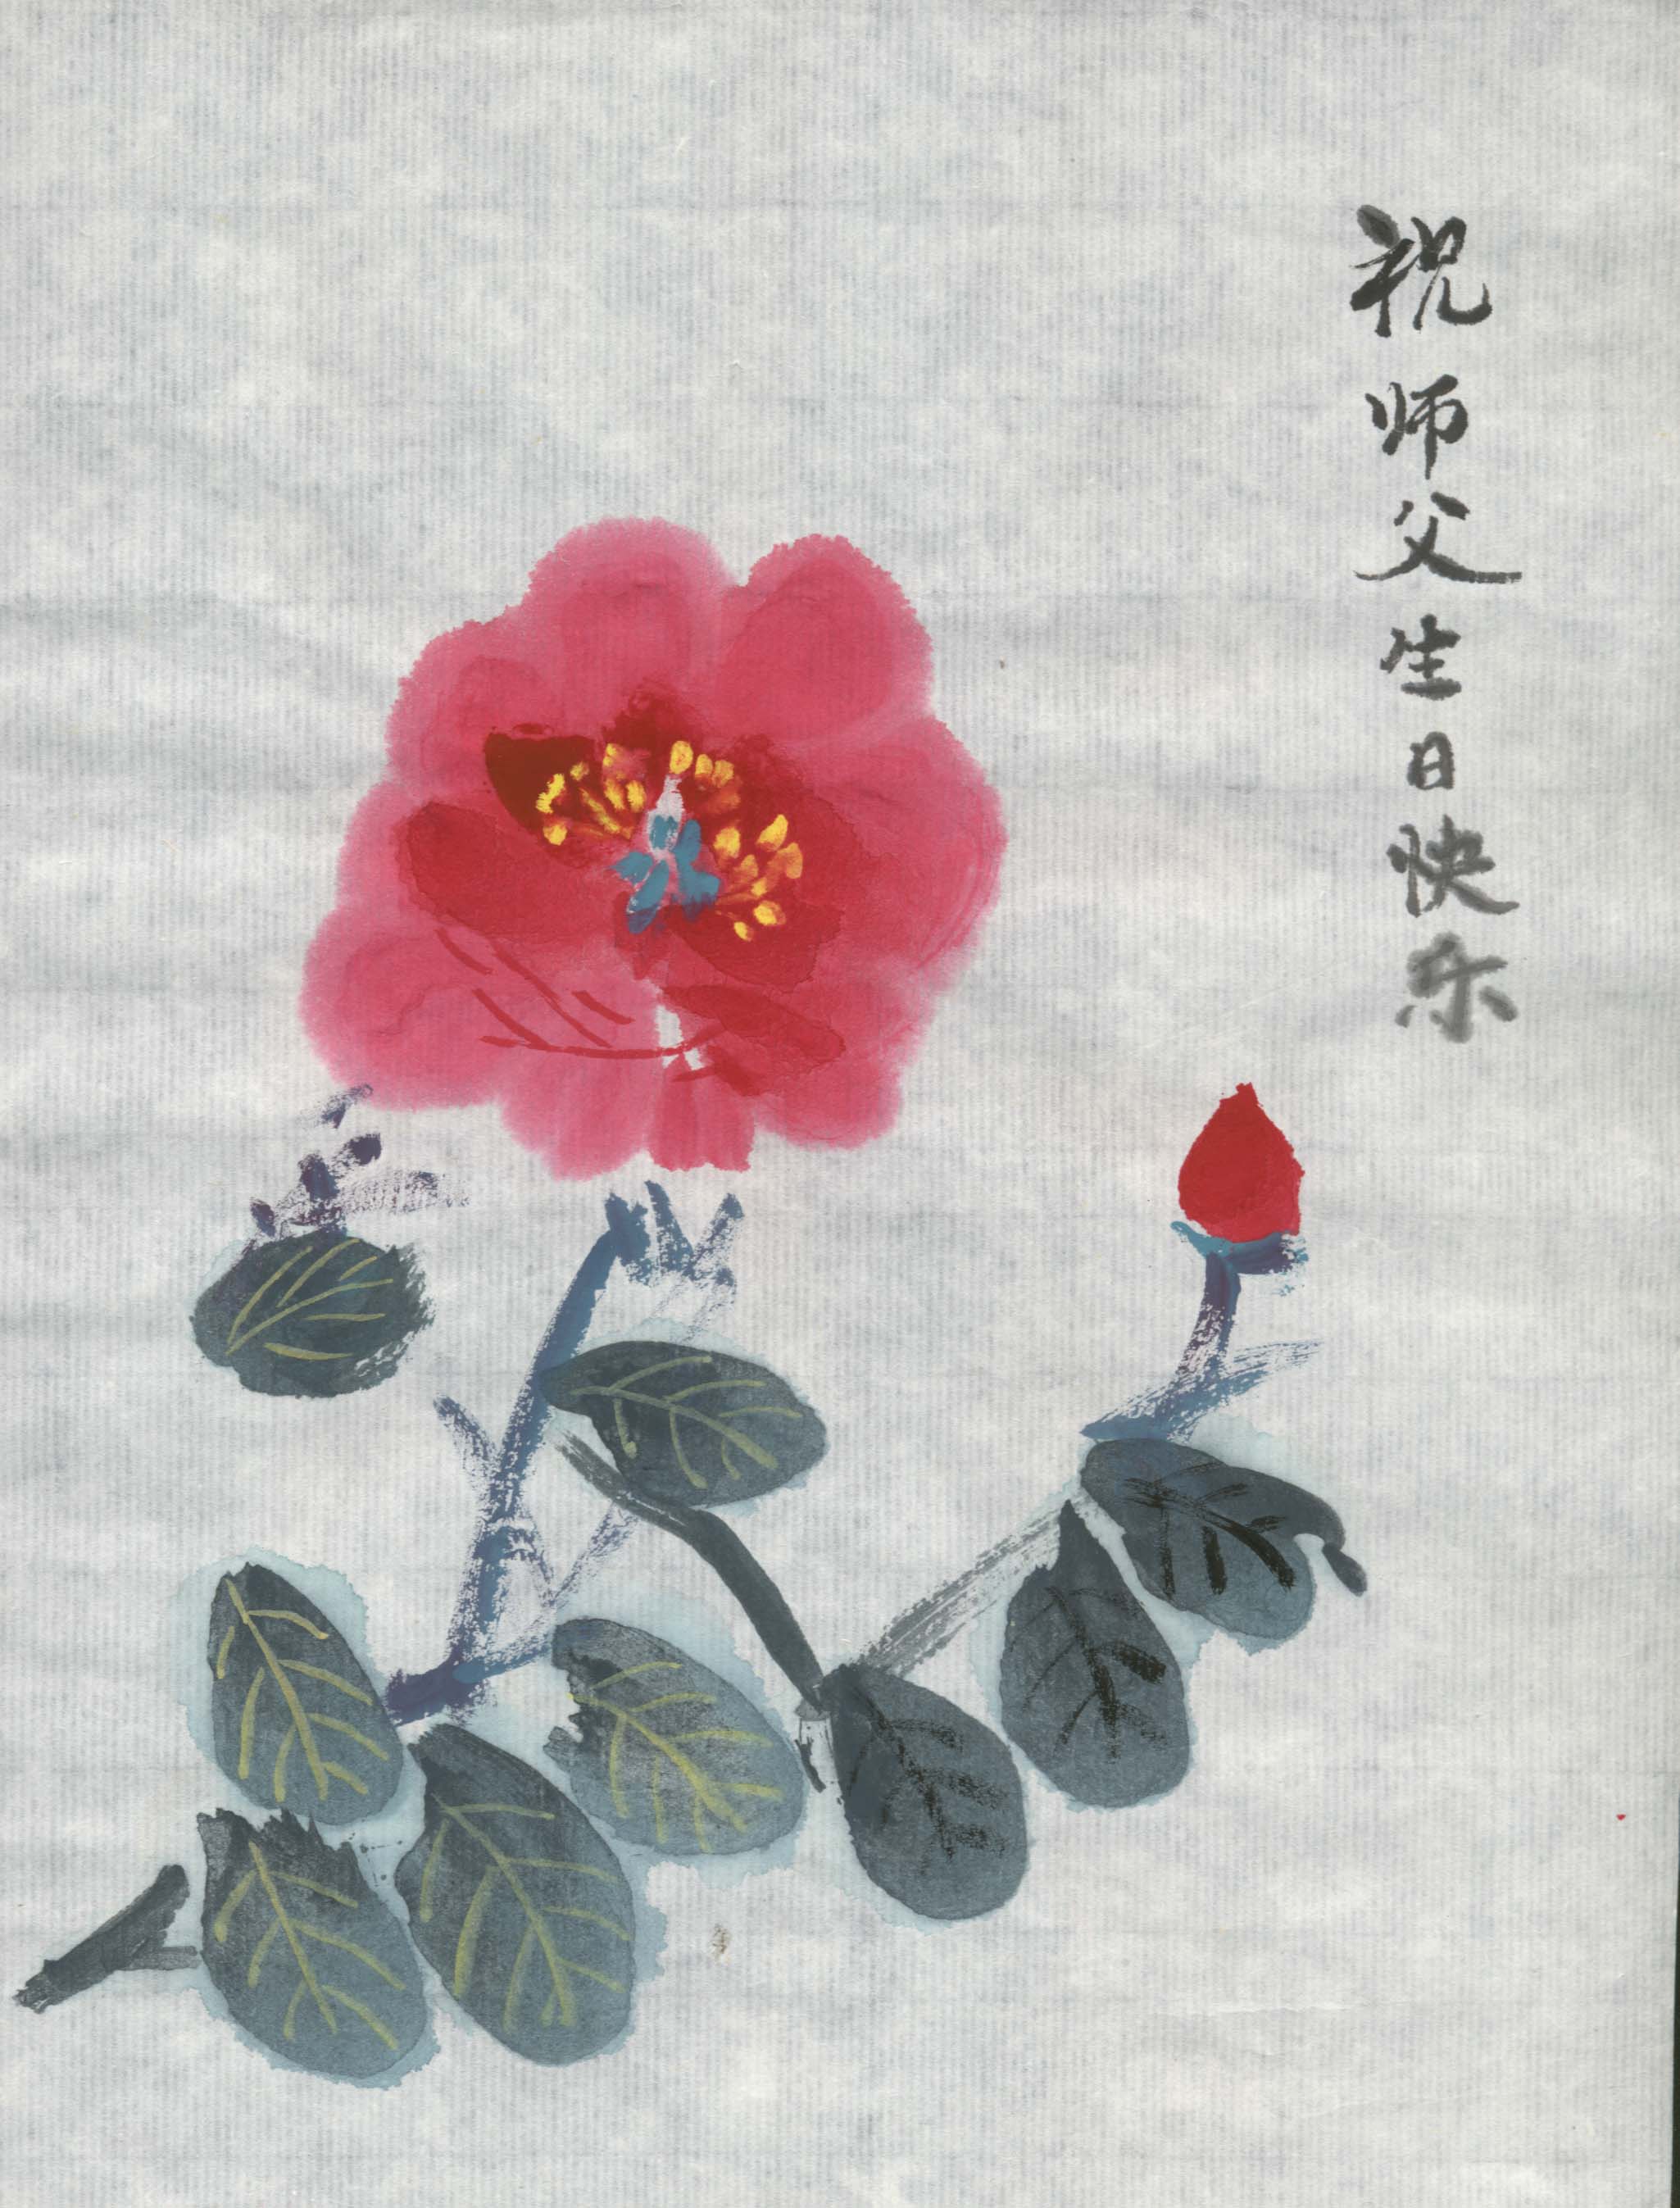 祝师父生日快乐